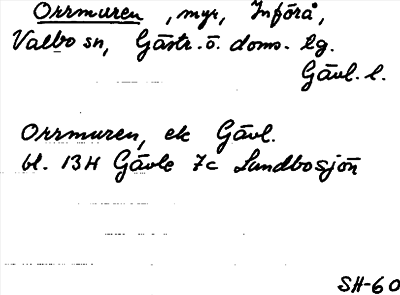 Orrmuren, myr, Införå,
Valbo sn, Gästr. ö. doms. lg.
Gävl. l.
Orrmuren, ek Gävl.
bl. 13H Gävle 7c Lundbosjön
SH-60